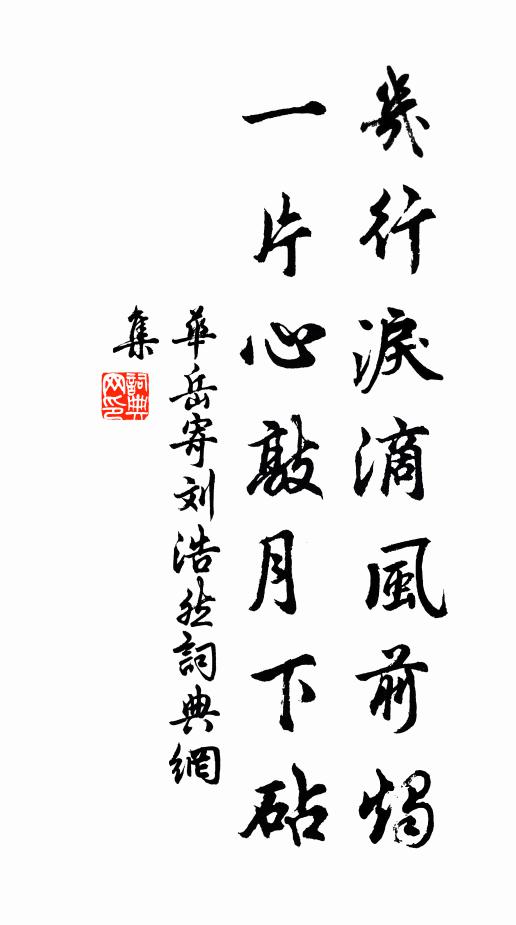 幾行淚滴風前燭
一片心敲月下砧
華岳寄刘浩然詞典網
集
詞典网印